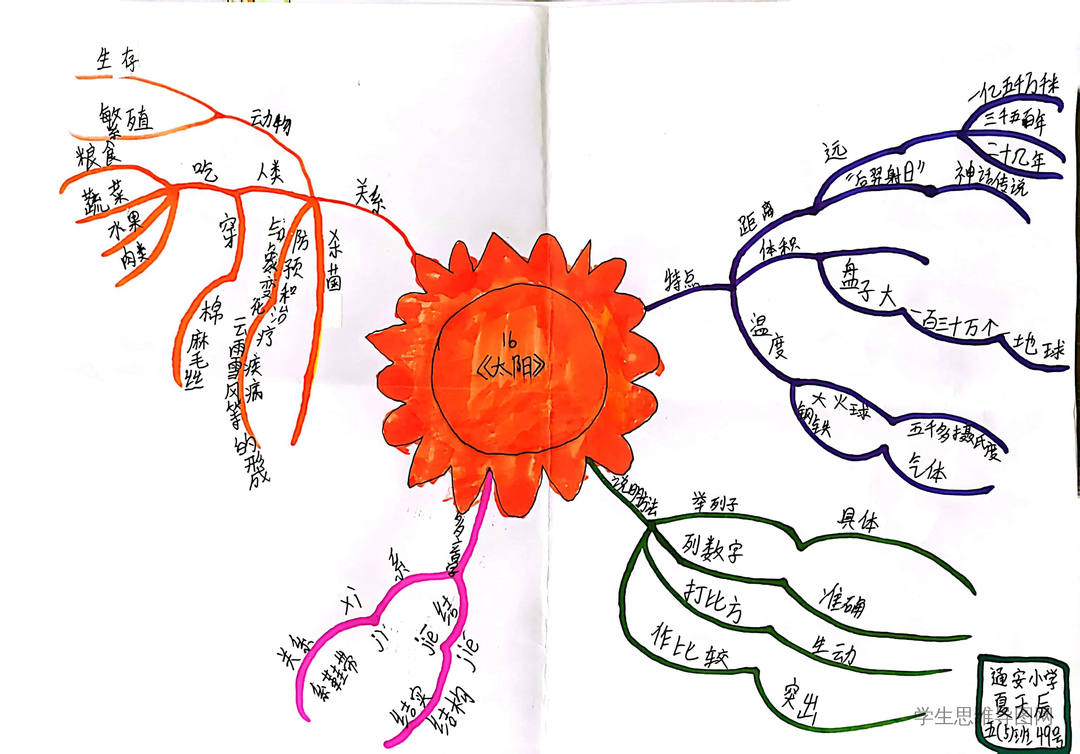 16
《太阳》
特点
距离
远
一亿五千万千米
三千五百年
二十几年
“后羿射日”
神话传说
体积
盘子大
一百三十万个
地球
温度
大火球
五千多摄氏度
钢铁
气体
说明方法
举列子
具体
列数字
准确
打比方
生动
作比较
突出
多音字
系
xì
关系
jì
系鞋带
结
jiē
结实
jié
结构
关系
动物
生存
繁殖
人类
吃
粮食
蔬菜
水果
肉类
穿
棉麻毛丝
气象变化
云雨雪风等的形成
防预和治疗疾病
杀菌
通安小学
五(5)班49号
学生思维导图网